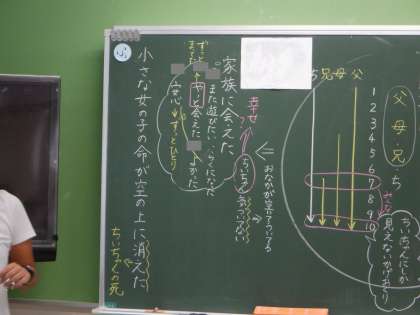 父・母・兄・ち
父
母
兄
う
1
2
3
4
5
6
7
8
9
10
ちいちゃんにしか
見えないかげおくり
おなかが空いている
幸せ
？
ちいちゃん
気づいてない
家族に会えた
また遊びたい
やっと会えた
よかった
安心
ずっとひとり
ずっと
まってた
小さな女の子の命が空の上に消えた
ちいちゃんの死
ふ